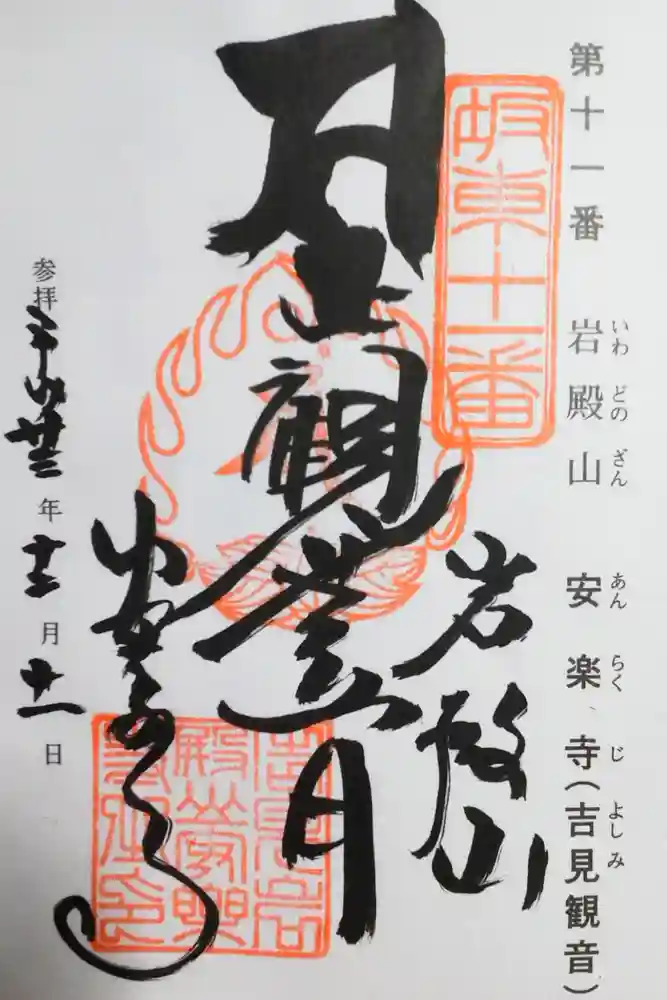 第十一番 岩殿山 安楽寺(吉見観音)
いわ どの ざん あん らく じ よし み
坂東十一番
岩殿山
聖観世音
安楽寺
参拝 平成廿三年十二月十一日